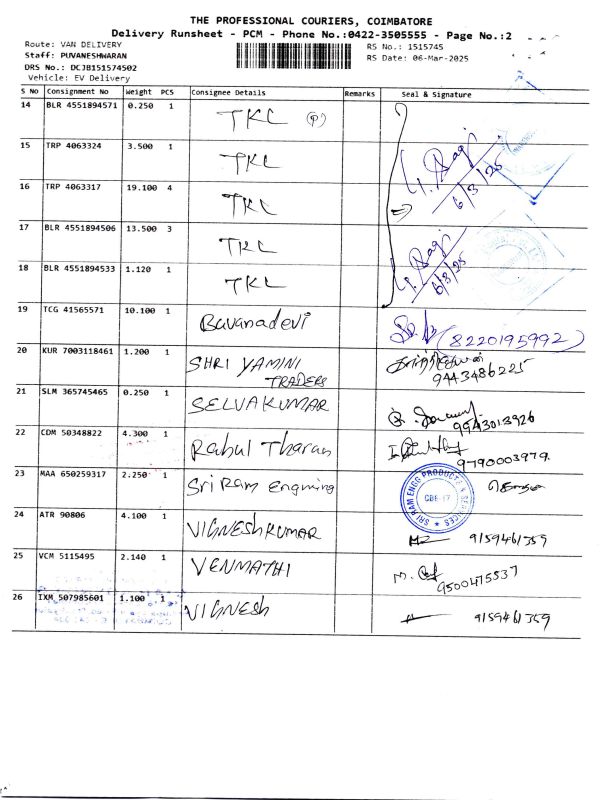 THE PROFESSIONAL COURIERS, COIMBATORE
Delivery Runsheet - PCM - Phone No.:0422-3505555 - Page No.:2
Route: VAN DELIVERY
RS No.: 1515745
Staff: PUVANESHWARAN
RS Date: 06-Mar-2025
DRS No.: DCJB151574502
Vehicle: EV Delivery
S No Consignment No Weight PCS Consignee Details Remarks Seal & Signature
14 BLR 4551894571 0.250 1 TKC (P)
15 TRP 4063324 3.500 1 TKC
6/3/25
16 TRP 4063317 19.100 4 TKC
17 BLR 4551894506 13.500 3 TKC
18 BLR 4551894533 1.120 1 TKC
19 TCG 41565571 10.100 1 Bavanadevi (8220195992)
20 KUR 7003118461 1.200 1 SHRI YAMINI TRADERS 9443486225
21 SLM 365745465 0.250 1 SELVAKUMAR 9943013926
22 CDM 50348822 4.300 1 Rahul Tharun 9790003979.
23 MAA 650259317 2.250 1 Sri Ram Engning
SRI RAM ENGG PRODUCTS & SERVICES
CBE-17
24 ATR 90806 4.100 1 VIGNESHKUMAR 9159461359
25 VCM 5115495 2.140 1 VENMATHI 9500475537
26 IXM 507985601 1.100 1 VIGNESH 9159461359